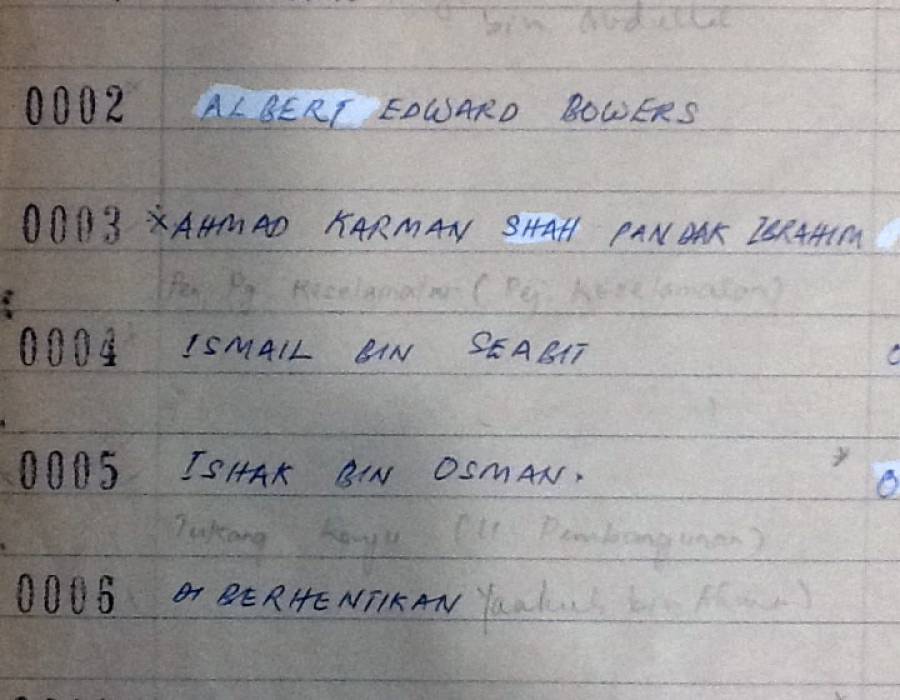 bin Abdullah
0002 ALBERT EDWARD BOWERS
0003 *AHMAD KARMAN SHAH PANDAK IBRAHIM
Pen Pg Keselamatan (Pej. Keselamatan)
0004 ISMAIL BIN SEABIT
0005 ISHAK BIN OSMAN.
Tukang Kayu (U Pembangunan)
0006 DI BERHENTIKAN Yaakub bin